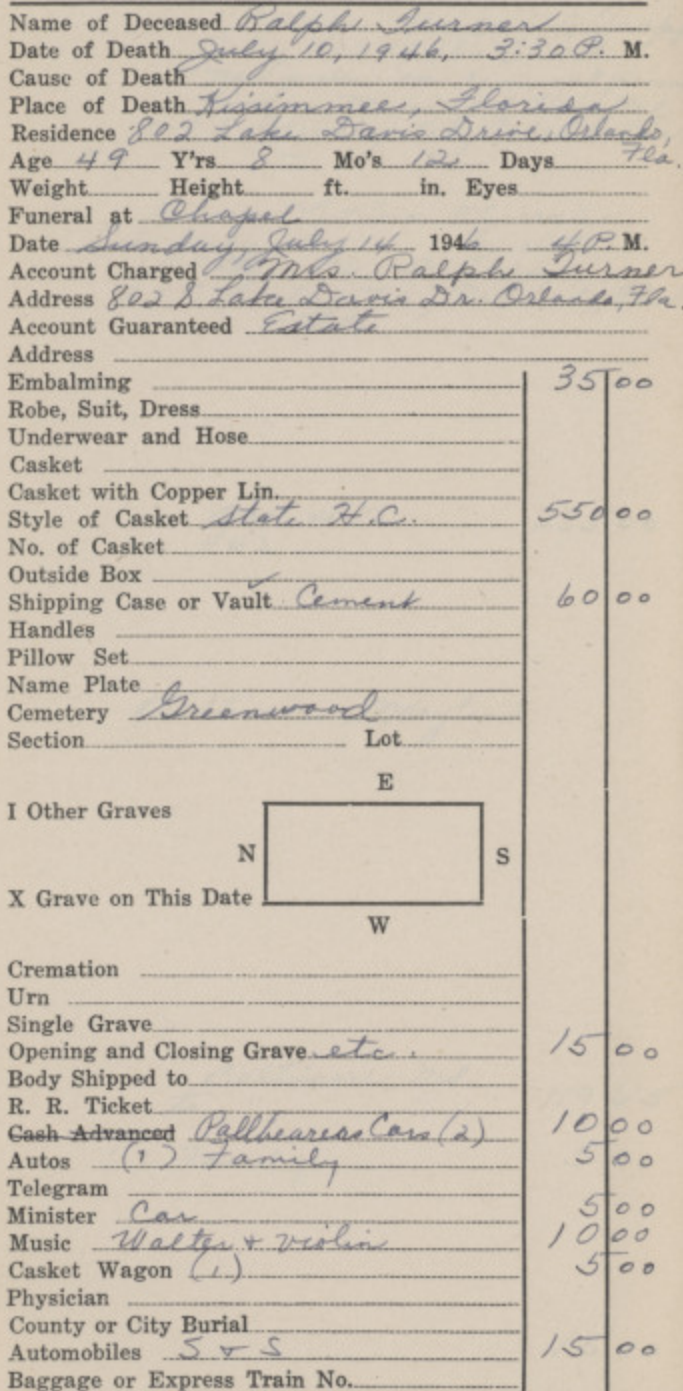 Name of Deceased Ralph Turner
Date of Death July 10, 1946, 3:30 P. M.
Cause of Death
Place of Death Kissimmee, Florida
Residence 802 Lake Davis Drive, Orlando, Fla.
Age 49 Y'rs 8 Mo's 12 Days
Weight Height ft. in. Eyes
Funeral at Chapel
Date Sunday, July 14 1946 4 P. M.
Account Charged Mrs. Ralph Turner
Address 802 S Lake Davis Dr. Orlando, Fla.
Account Guaranteed Estate
Address
Embalming 35 00
Robe, Suit, Dress
Underwear and Hose
Casket
Casket with Copper Lin.
Style of Casket State H.C. 550 00
No. of Casket
Outside Box
Shipping Case or Vault Cement 60 00
Handles
Pillow Set
Name Plate
Cemetery Greenwood
Section Lot
E
I Other Graves
N S
X Grave on This Date
W
Cremation
Urn
Single Grave
Opening and Closing Grave etc. 15 00
Body Shipped to
R. R. Ticket
Cash Advanced Pallbearers Cars (2) 10 00
Autos (1) Family 5 00
Telegram
Minister Car 5 00
Music Walter + Violin 10 00
Casket Wagon (1) 5 00
Physician
County or City Burial
Automobiles S & S 15 00
Baggage or Express Train No.